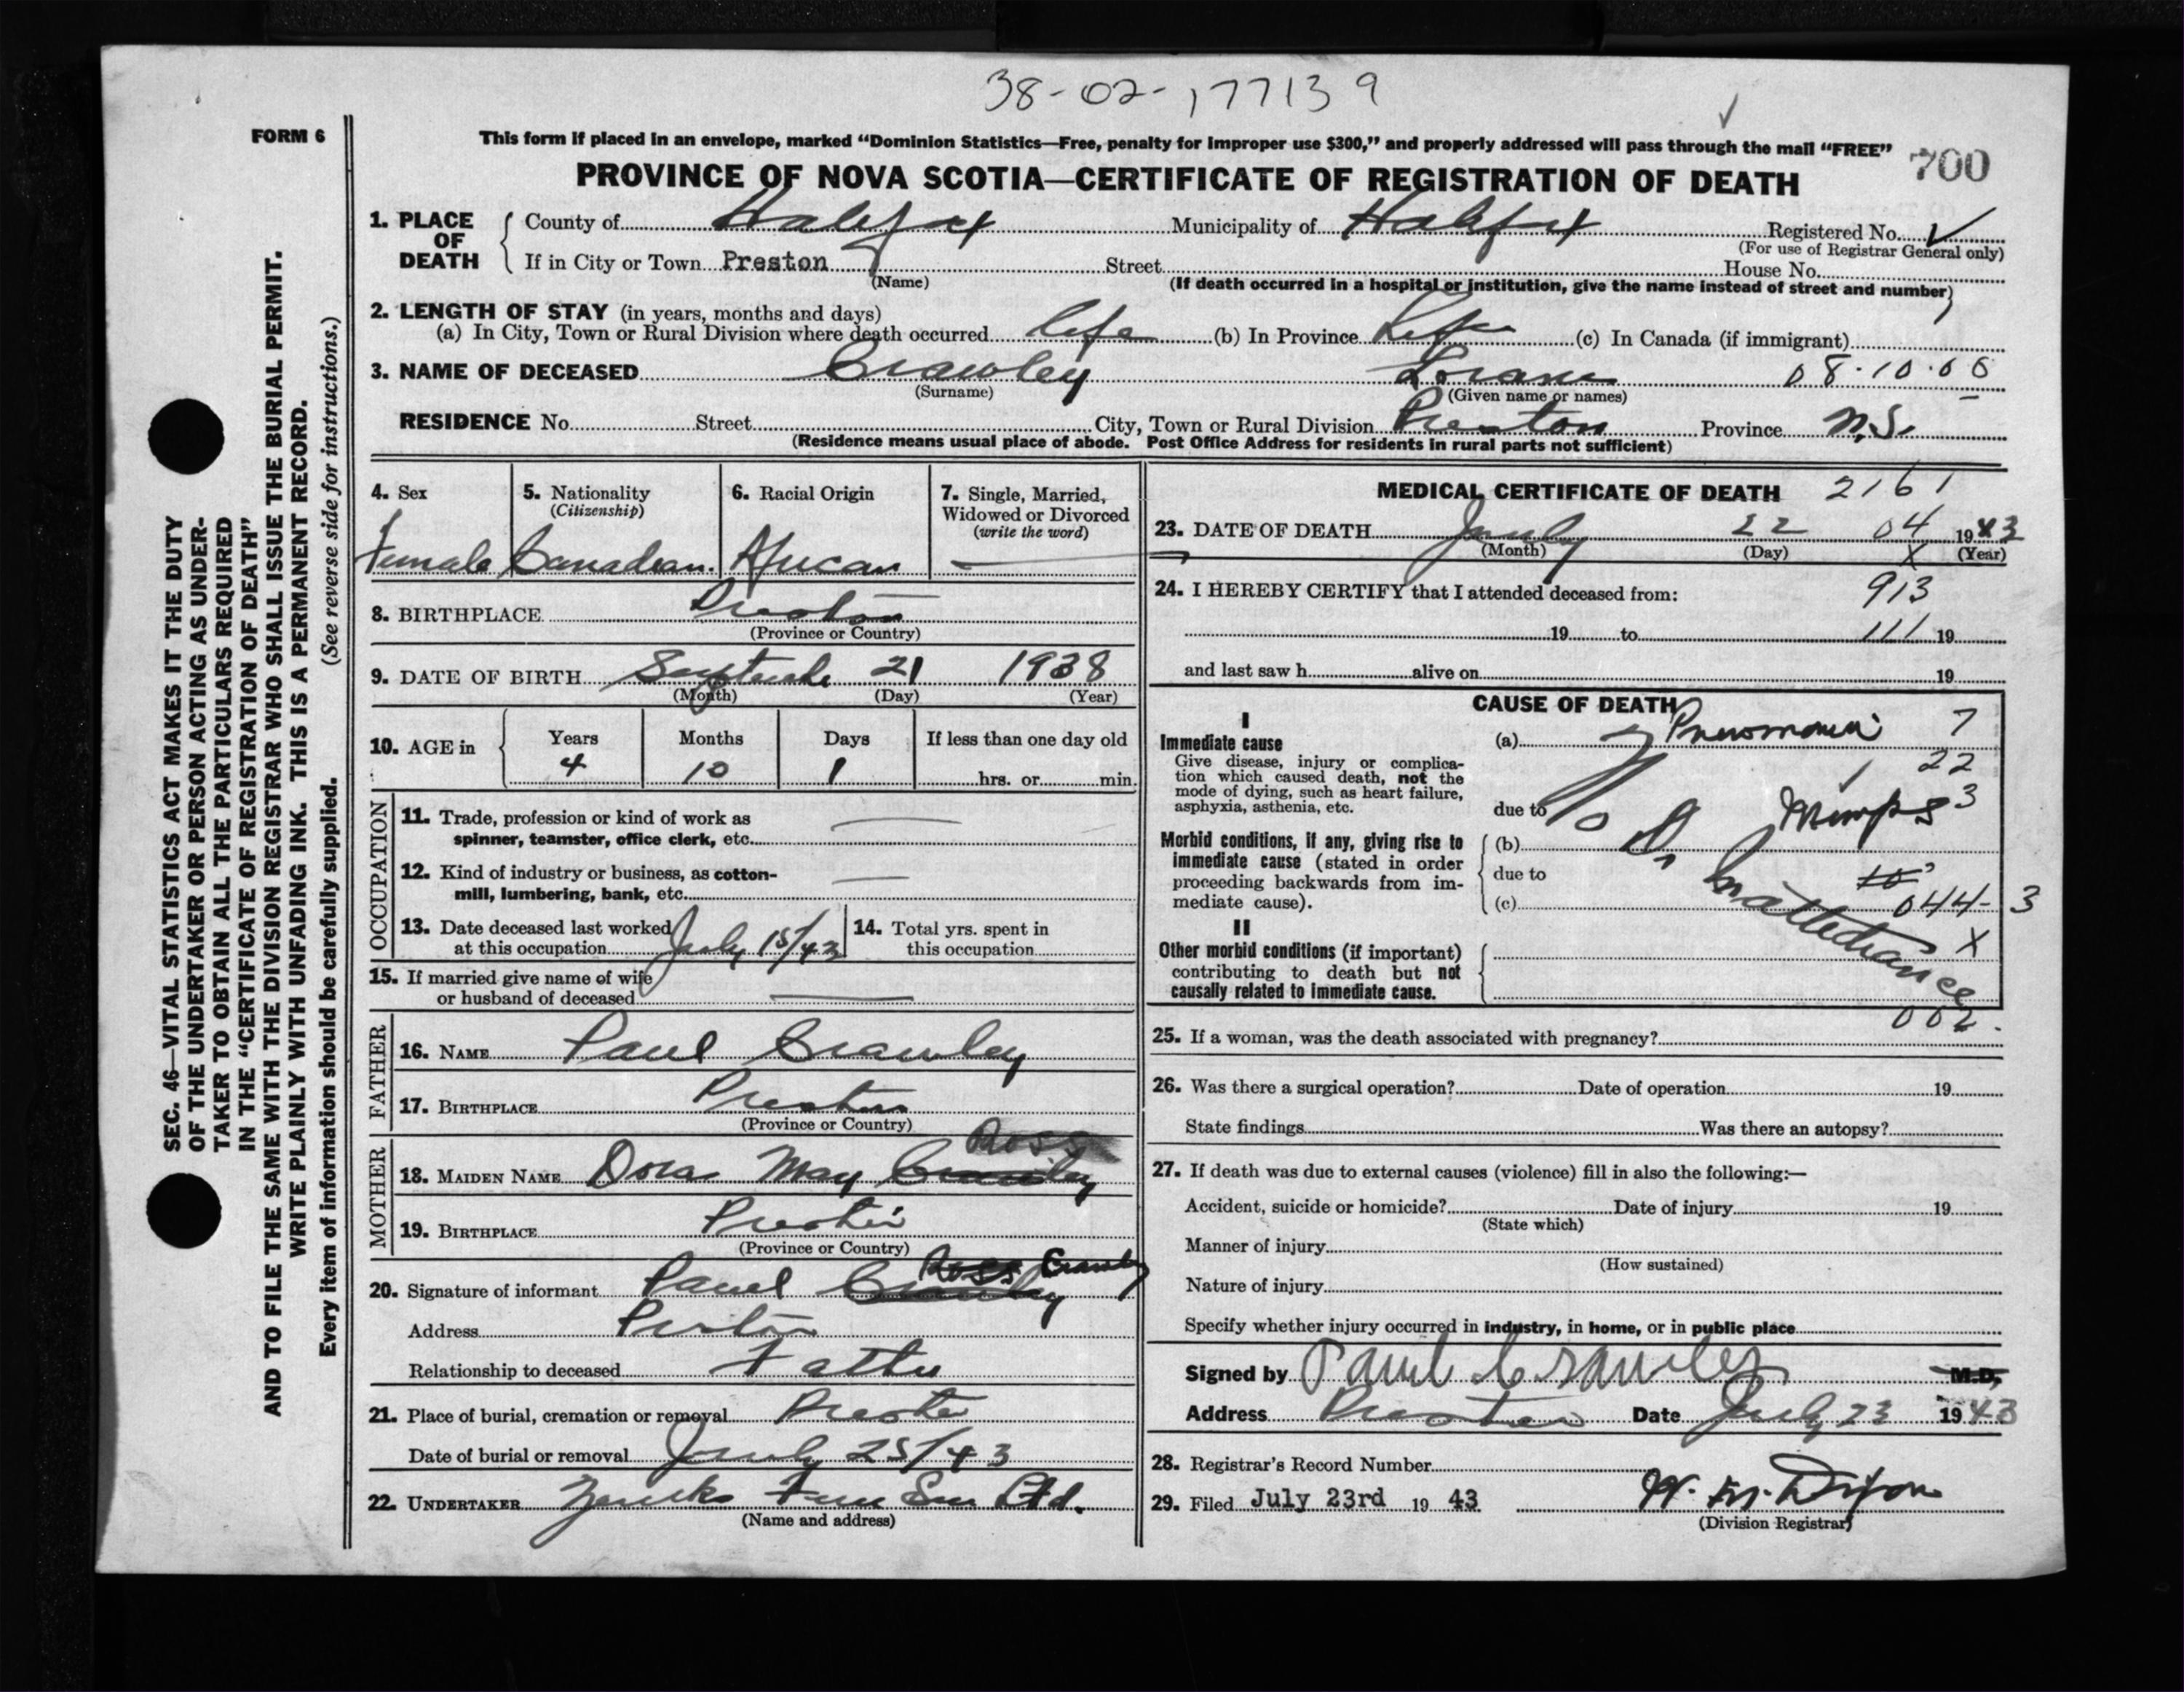 38-02-177139
FORM 6
This form if placed in an envelope, marked “Dominion Statistics—Free, penalty for improper use $300,” and properly addressed will pass through the mail “FREE”
700
PROVINCE OF NOVA SCOTIA—CERTIFICATE OF REGISTRATION OF DEATH
1. PLACE OF DEATH
County of Halifax Municipality of Halifax Registered No.
(For use of Registrar General only)
If in City or Town Preston Street House No.
(Name) (If death occurred in a hospital or institution, give the name instead of street and number)
2. LENGTH OF STAY (in years, months and days)
(a) In City, Town or Rural Division where death occurred life (b) In Province Life (c) In Canada (if immigrant)
3. NAME OF DECEASED Crawley 08-10-06
(Surname) (Given name or names)
RESIDENCE No. Street City, Town or Rural Division Preston Province N.S.
(Residence means usual place of abode. Post Office Address for residents in rural parts not sufficient)
4. Sex
Female
5. Nationality
(Citizenship)
Canadian.
6. Racial Origin
African
7. Single, Married,
Widowed or Divorced
(write the word)
8. BIRTHPLACE Preston
(Province or Country)
9. DATE OF BIRTH September 21 1938
(Month) (Day) (Year)
10. AGE in
Years Months Days If less than one day old
4 10 1 hrs. or min.
OCCUPATION
11. Trade, profession or kind of work as
spinner, teamster, office clerk, etc.
12. Kind of industry or business, as cotton-
mill, lumbering, bank, etc.
13. Date deceased last worked
at this occupation July 15/43
14. Total yrs. spent in
this occupation
15. If married give name of wife
or husband of deceased
FATHER
16. NAME Paul Crawley
17. BIRTHPLACE Preston
(Province or Country)
MOTHER
Ross
18. MAIDEN NAME Dora May Crawley
19. BIRTHPLACE Preston
(Province or Country)
Ross Crawley
20. Signature of informant Paul Crawley
Address Preston
Relationship to deceased Father
21. Place of burial, cremation or removal Preston
Date of burial or removal July 25/43
22. UNDERTAKER Ltd.
(Name and address)
MEDICAL CERTIFICATE OF DEATH 2161
23. DATE OF DEATH July 22 04 1943
(Month) (Day) X (Year)
24. I HEREBY CERTIFY that I attended deceased from: 913
19 to 111 19
and last saw h alive on 19
CAUSE OF DEATH
I
Immediate cause
Give disease, injury or complica-
tion which caused death, not the
mode of dying, such as heart failure,
asphyxia, asthenia, etc.
(a) Pneumonia 7
22
due to Mumps 3
Morbid conditions, if any, giving rise to
immediate cause (stated in order
proceeding backwards from im-
mediate cause).
(b)
due to
(c) 044-3
No Dr in attendance
X
II
Other morbid conditions (if important)
contributing to death but not
causally related to immediate cause.
002.
25. If a woman, was the death associated with pregnancy?
26. Was there a surgical operation? Date of operation 19
State findings Was there an autopsy?
27. If death was due to external causes (violence) fill in also the following:—
Accident, suicide or homicide? Date of injury 19
(State which)
Manner of injury
(How sustained)
Nature of injury
Specify whether injury occurred in industry, in home, or in public place
Signed by Paul Crawley M.D.
Address Preston Date July 23 1943
28. Registrar's Record Number
29. Filed July 23rd 19 43 W. M. Dixon
(Division Registrar)
SEC. 46—VITAL STATISTICS ACT MAKES IT THE DUTY
OF THE UNDERTAKER OR PERSON ACTING AS UNDER-
TAKER TO OBTAIN ALL THE PARTICULARS REQUIRED
IN THE “CERTIFICATE OF REGISTRATION OF DEATH”
AND TO FILE THE SAME WITH THE DIVISION REGISTRAR WHO SHALL ISSUE THE BURIAL PERMIT.
WRITE PLAINLY WITH UNFADING INK. THIS IS A PERMANENT RECORD.
Every item of information should be carefully supplied. (See reverse side for instructions.)